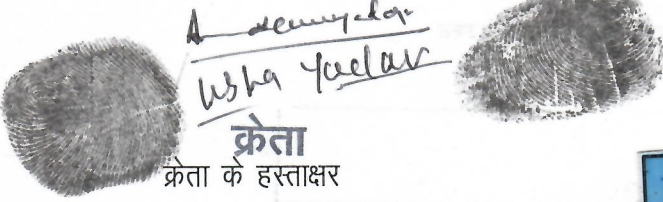 Usha Yadav
क्रेता
क्रेता के हस्ताक्षर